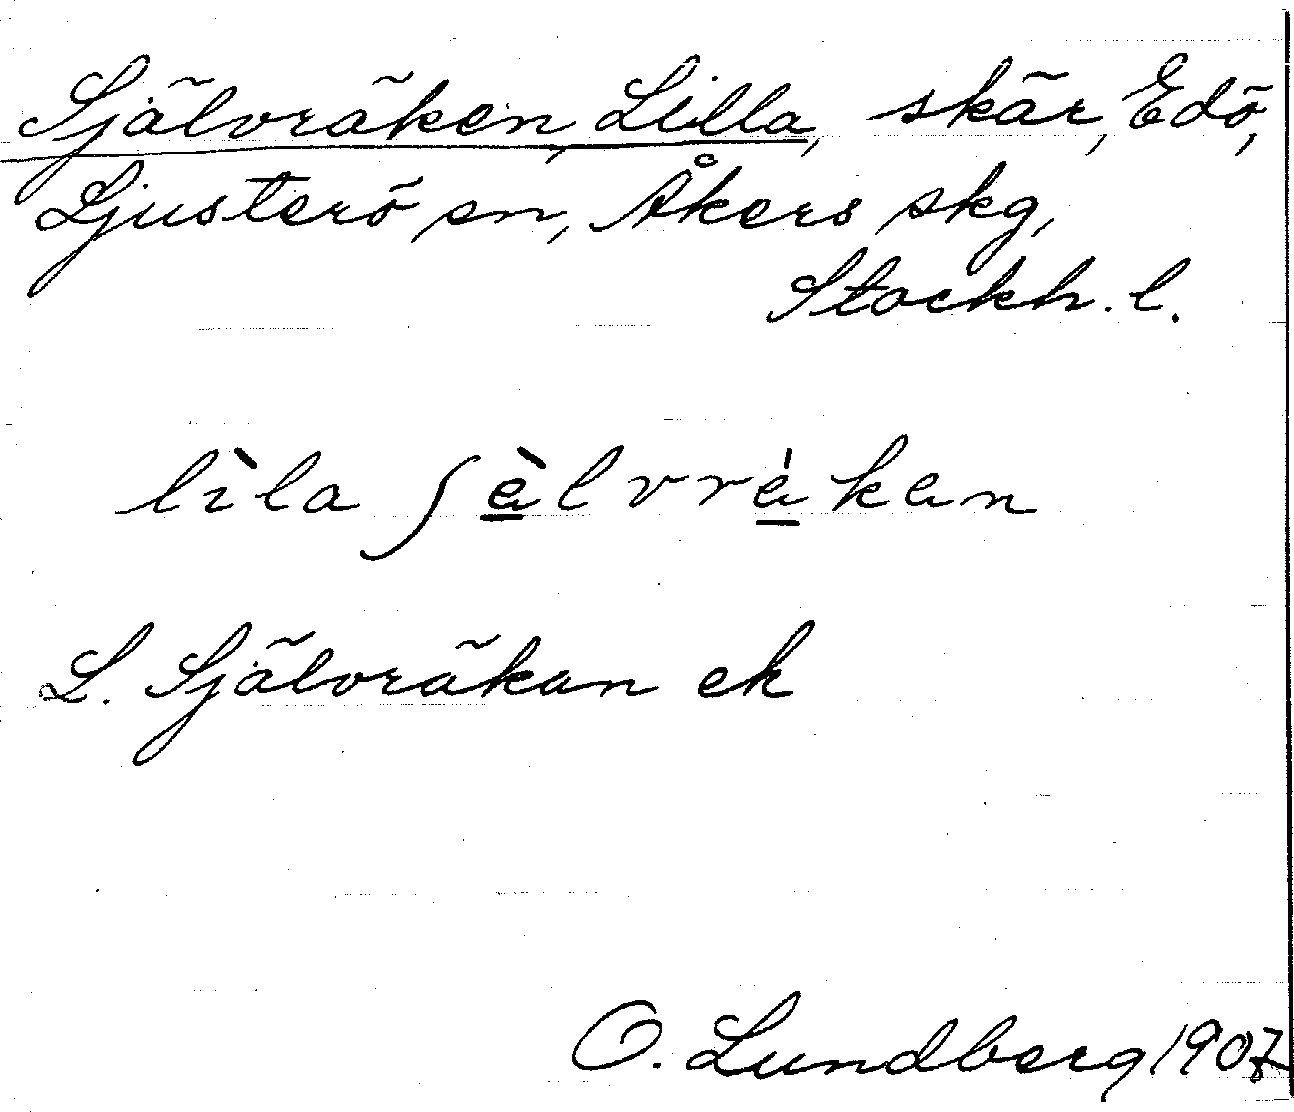 Självräken, Lilla, skär, Edö,
Ljusterö sn, Åkers skg,
Stockh. l.
lìla ʃæ̀lvræ̀kan
L. Självräkan ek
O. Lundberg 1907